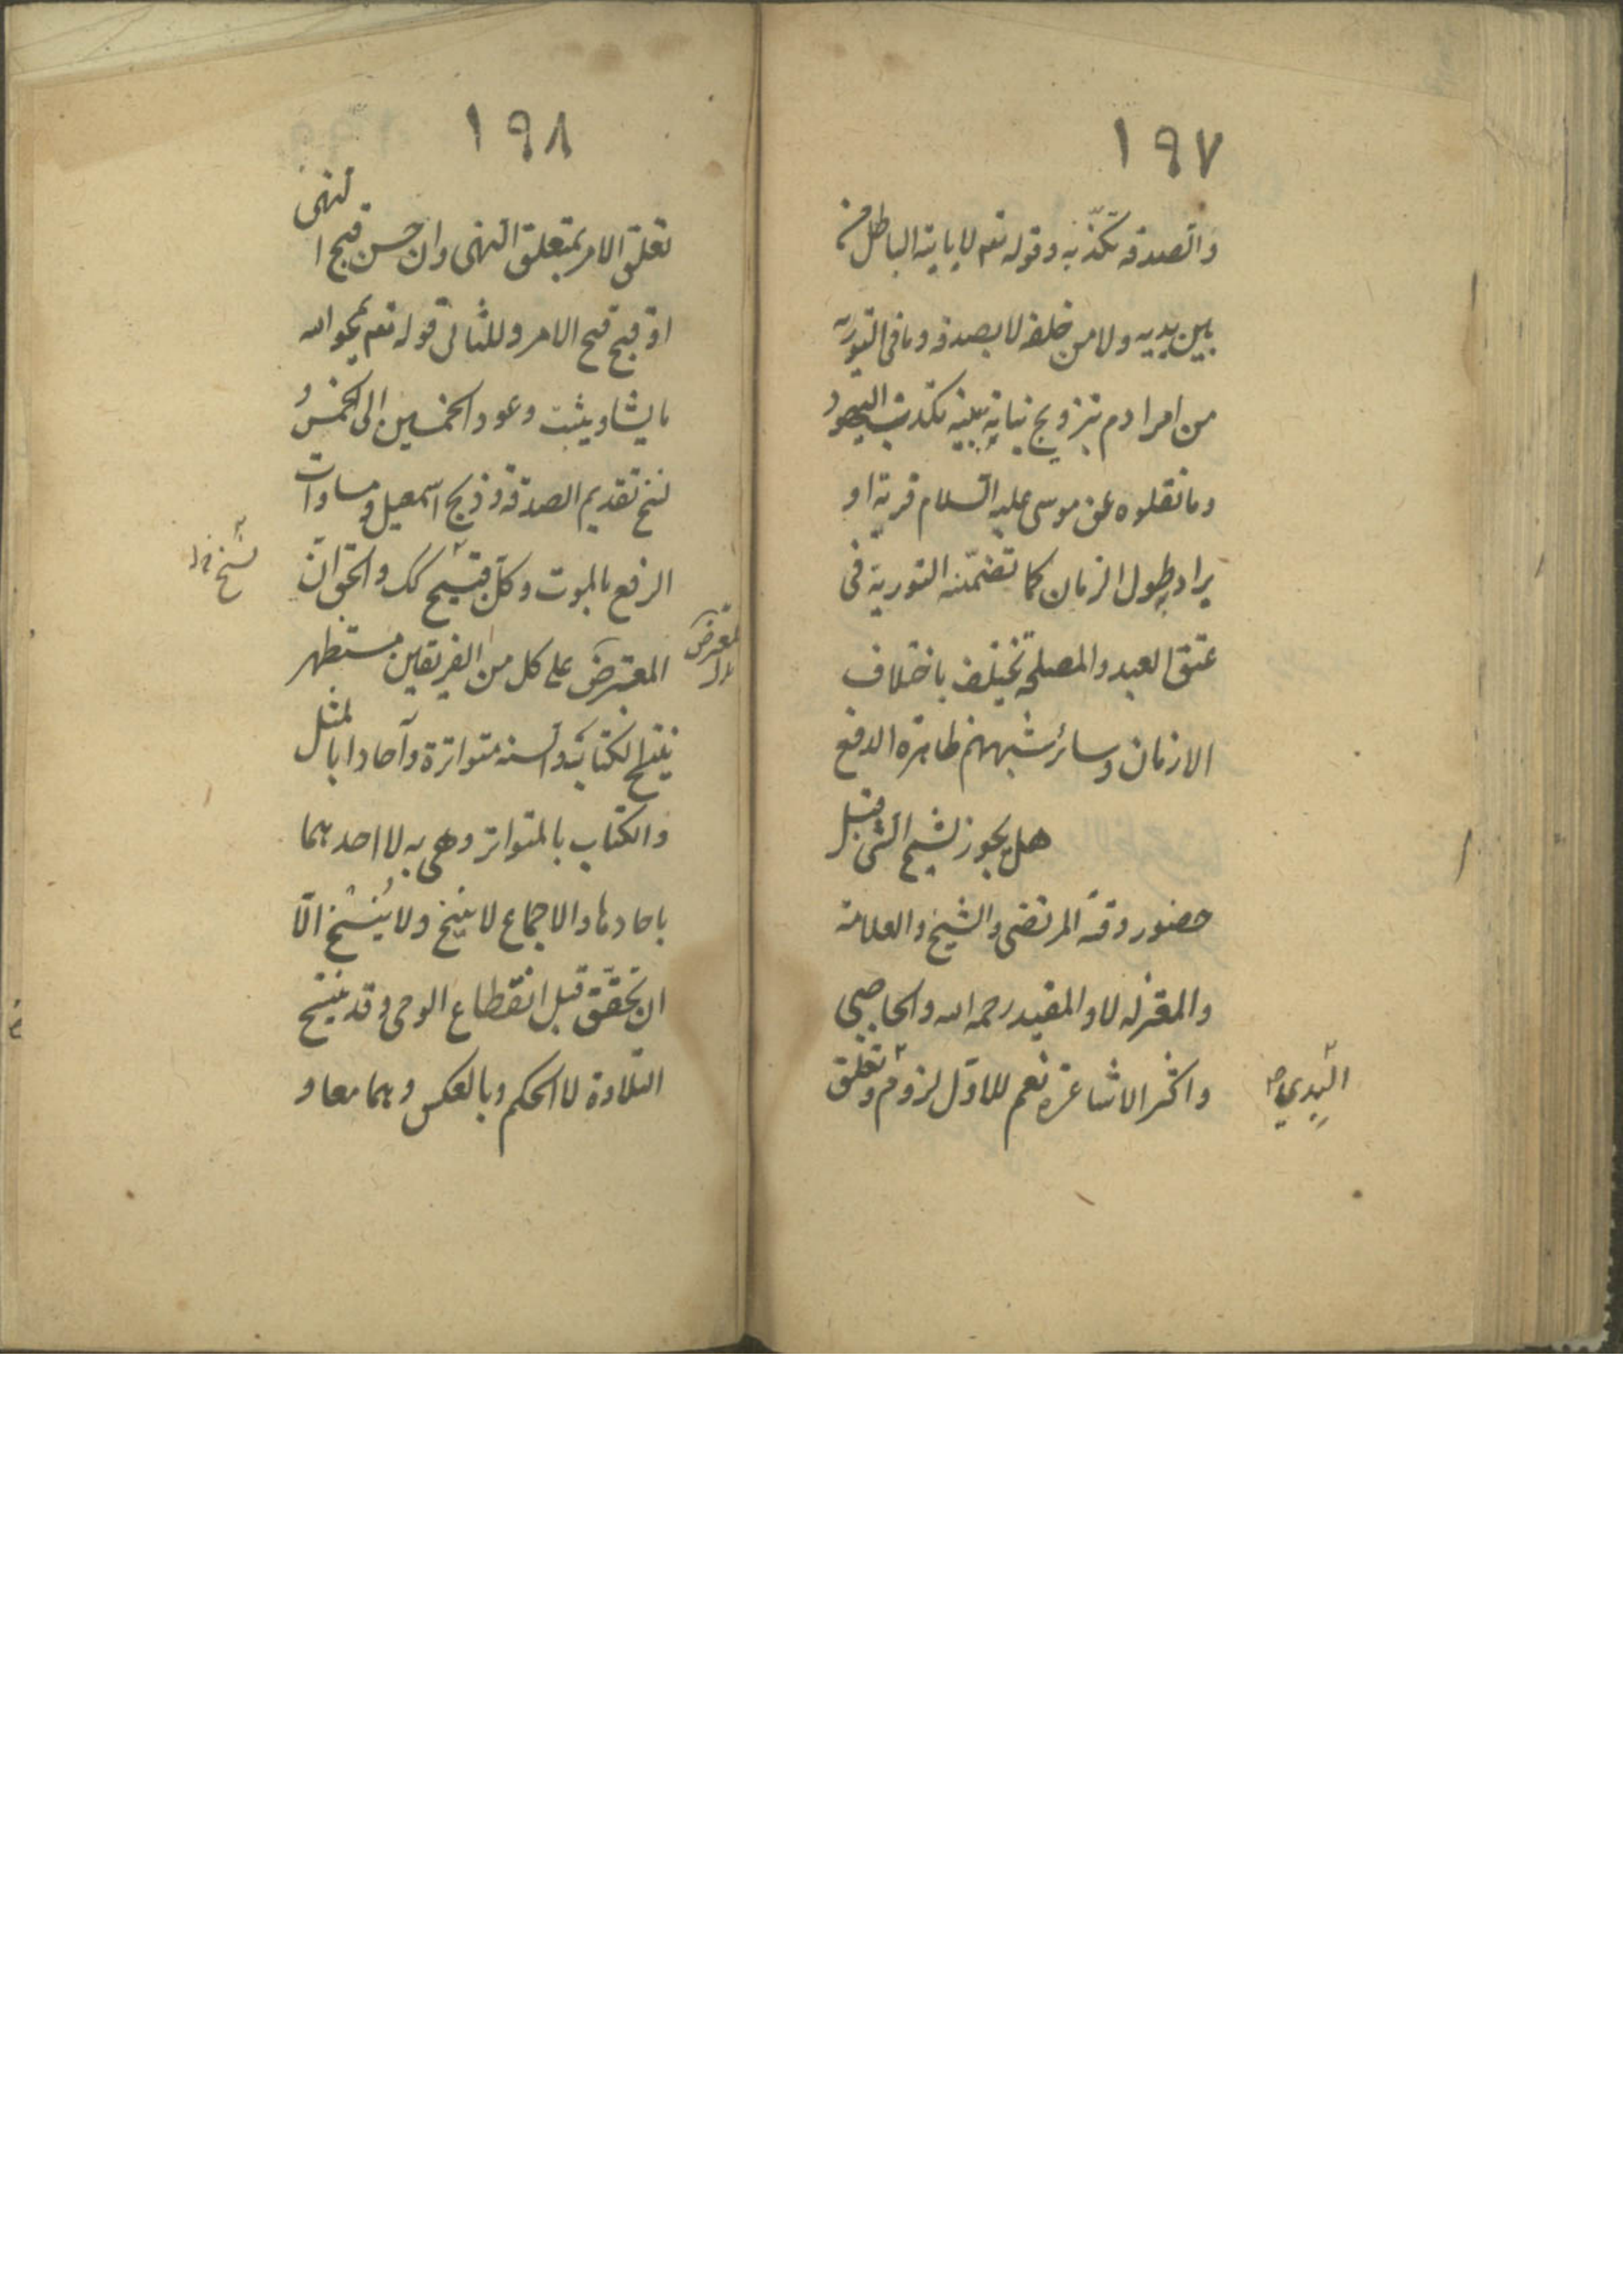 ١٩٧
والصدقة تكذبه وقوله تعم لا ياتيه الباطل من
بين يديه ولا من خلفه لا يصدقه وما فى التورية
من امر ادم بتزويج بناته ببنيه تكذب اليهود
وما نقلوه عن موسى عليه السلام فرية او
يراد طول الزمان كما تضمنته التورية فى
عتق العبد والمصلحة تختلف باختلاف
الازمان وسائر شبههم ظاهرة الدفع
هل يجوز نسخ الشئ قبل
حضور وقته المرتضى والشيخ والعلامة
والمعتزله لا والمفيد رحمه الله والحاجبى
واكثر الاشاعرة نعم للاول لزوم وتعلق
البدء
١٩٨
تعلق الامر بمتعلق النهى وان حسن قبح النهى
او قبح قبح الامر وللثانى قوله تعم يمحو الله
ما يشاء ويثبت وعود الخمسين الى الخمس و
نسخ تقديم الصدقة وذبح اسمعيل ومساوات
الرفع بالموت وكل قبيح كك والحق ان
نسخ
المعترض على كل من الفريقين مستظهر
المعترض
ينسخ الكتاب والسنه متواترة وآحادا بالمثل
والكتاب بالمتواتر وهى به لا احدهما
باحادها والاجماع لا ينسخ ولا يُنسخ الّا
ان تحقّق قبل انقطاع الوحى وقد ينسخ
التلاوة لا الحكم وبالعكس وهما معا و